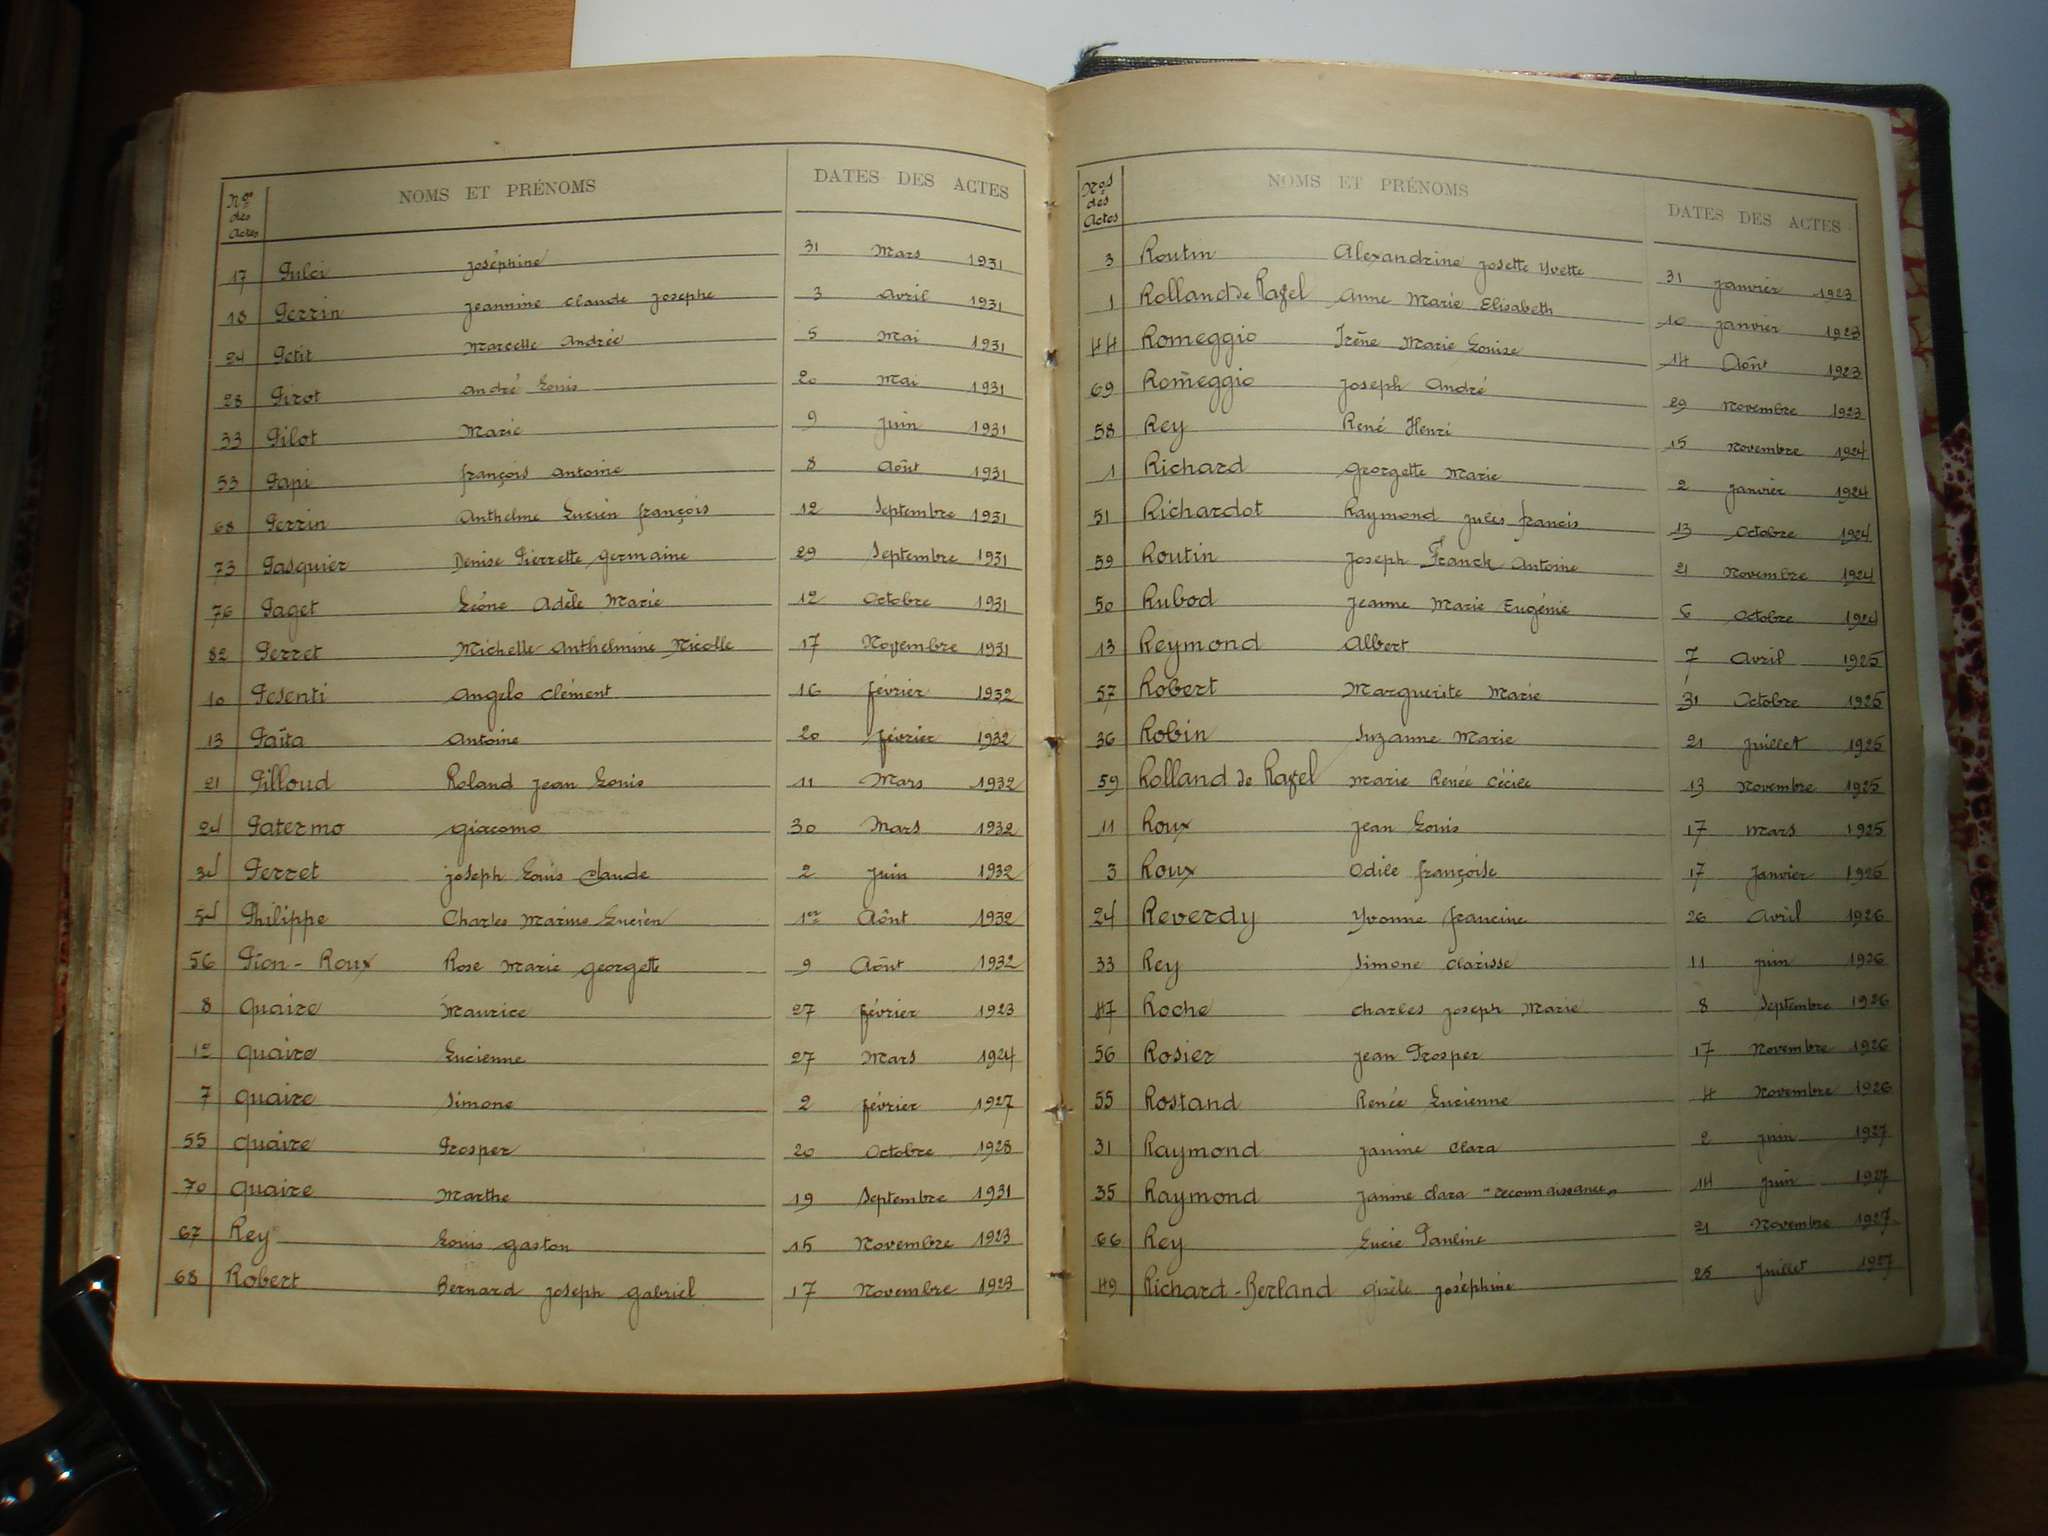 Nos des Actes NOMS ET PRÉNOMS DATES DES ACTES
17 Pulci Joséphine 31 Mars 1931
18 Perrin Jeannine Claude Josephe 3 Avril 1931
24 Petit Marcelle Andrée 5 Mai 1931
28 Pirot André Louis 20 Mai 1931
33 Pilot Marie 9 Juin 1931
53 Papi François Antoine 8 Août 1931
68 Perrin Anthelme Lucien François 12 Septembre 1931
73 Pasquier Denise Pierrette Germaine 29 Septembre 1931
76 Paget Léone Adèle Marie 12 Octobre 1931
82 Perret Michelle Anthelmine Nicolle 17 Novembre 1931
10 Pesenti Angelo Clément 16 Février 1932
13 Païta Antoine 20 Février 1932
21 Pilloud Roland Jean Louis 11 Mars 1932
24 Patermo Giacomo 30 Mars 1932
34 Perret Joseph Louis Claude 2 Juin 1932
54 Philippe Charles Marius Lucien 1er Août 1932
56 Pion - Roux Rose Marie Georgette 9 Août 1932
8 Quaire Maurice 27 Février 1923
12 Quaire Lucienne 27 Mars 1924
7 Quaire Simone 2 Février 1927
55 Quaire Prosper 20 Octobre 1928
70 Quaire Marthe 19 Septembre 1931
67 Rey Louis Gaston 15 Novembre 1923
68 Robert Bernard Joseph Gabriel 17 Novembre 1923
Nos des Actes NOMS ET PRÉNOMS DATES DES ACTES
3 Routin Alexandrine Josette Yvette 31 Janvier 1923
1 Rolland de Ravel Anne Marie Elisabeth 10 Janvier 1923
44 Romeggio Irène Marie Louise 14 Août 1923
69 Romeggio Joseph André 29 Novembre 1923
58 Rey René Henri 15 Novembre 1924
1 Richard Georgette Marie 2 Janvier 1924
51 Richardot Raymond Jules Francis 13 Octobre 1924
59 Routin Joseph Franck Antoine 21 Novembre 1924
50 Rubod Jeanne Marie Eugénie 6 Octobre 1924
13 Reymond Albert 7 Avril 1925
57 Robert Marguerite Marie 31 Octobre 1925
36 Robin Suzanne Marie 21 Juillet 1925
59 Rolland de Ravel Marie Renée Cécile 13 Novembre 1925
11 Roux Jean Louis 17 Mars 1925
3 Roux Odile Françoise 17 Janvier 1925
24 Reverdy Yvonne Francine 26 Avril 1926
33 Rey Simone Clarisse 11 Juin 1926
47 Roche Charles Joseph Marie 8 Septembre 1926
56 Rosier Jean Prosper 17 Novembre 1926
55 Rostand Renée Lucienne 4 Novembre 1926
31 Raymond Janine Clara 2 Juin 1927
35 Raymond Janine Clara "reconnaissance" 14 Juin 1927
66 Rey Lucie Pauline 21 Novembre 1927
49 Richard-Berland Gisèle Joséphine 25 Juillet 1927